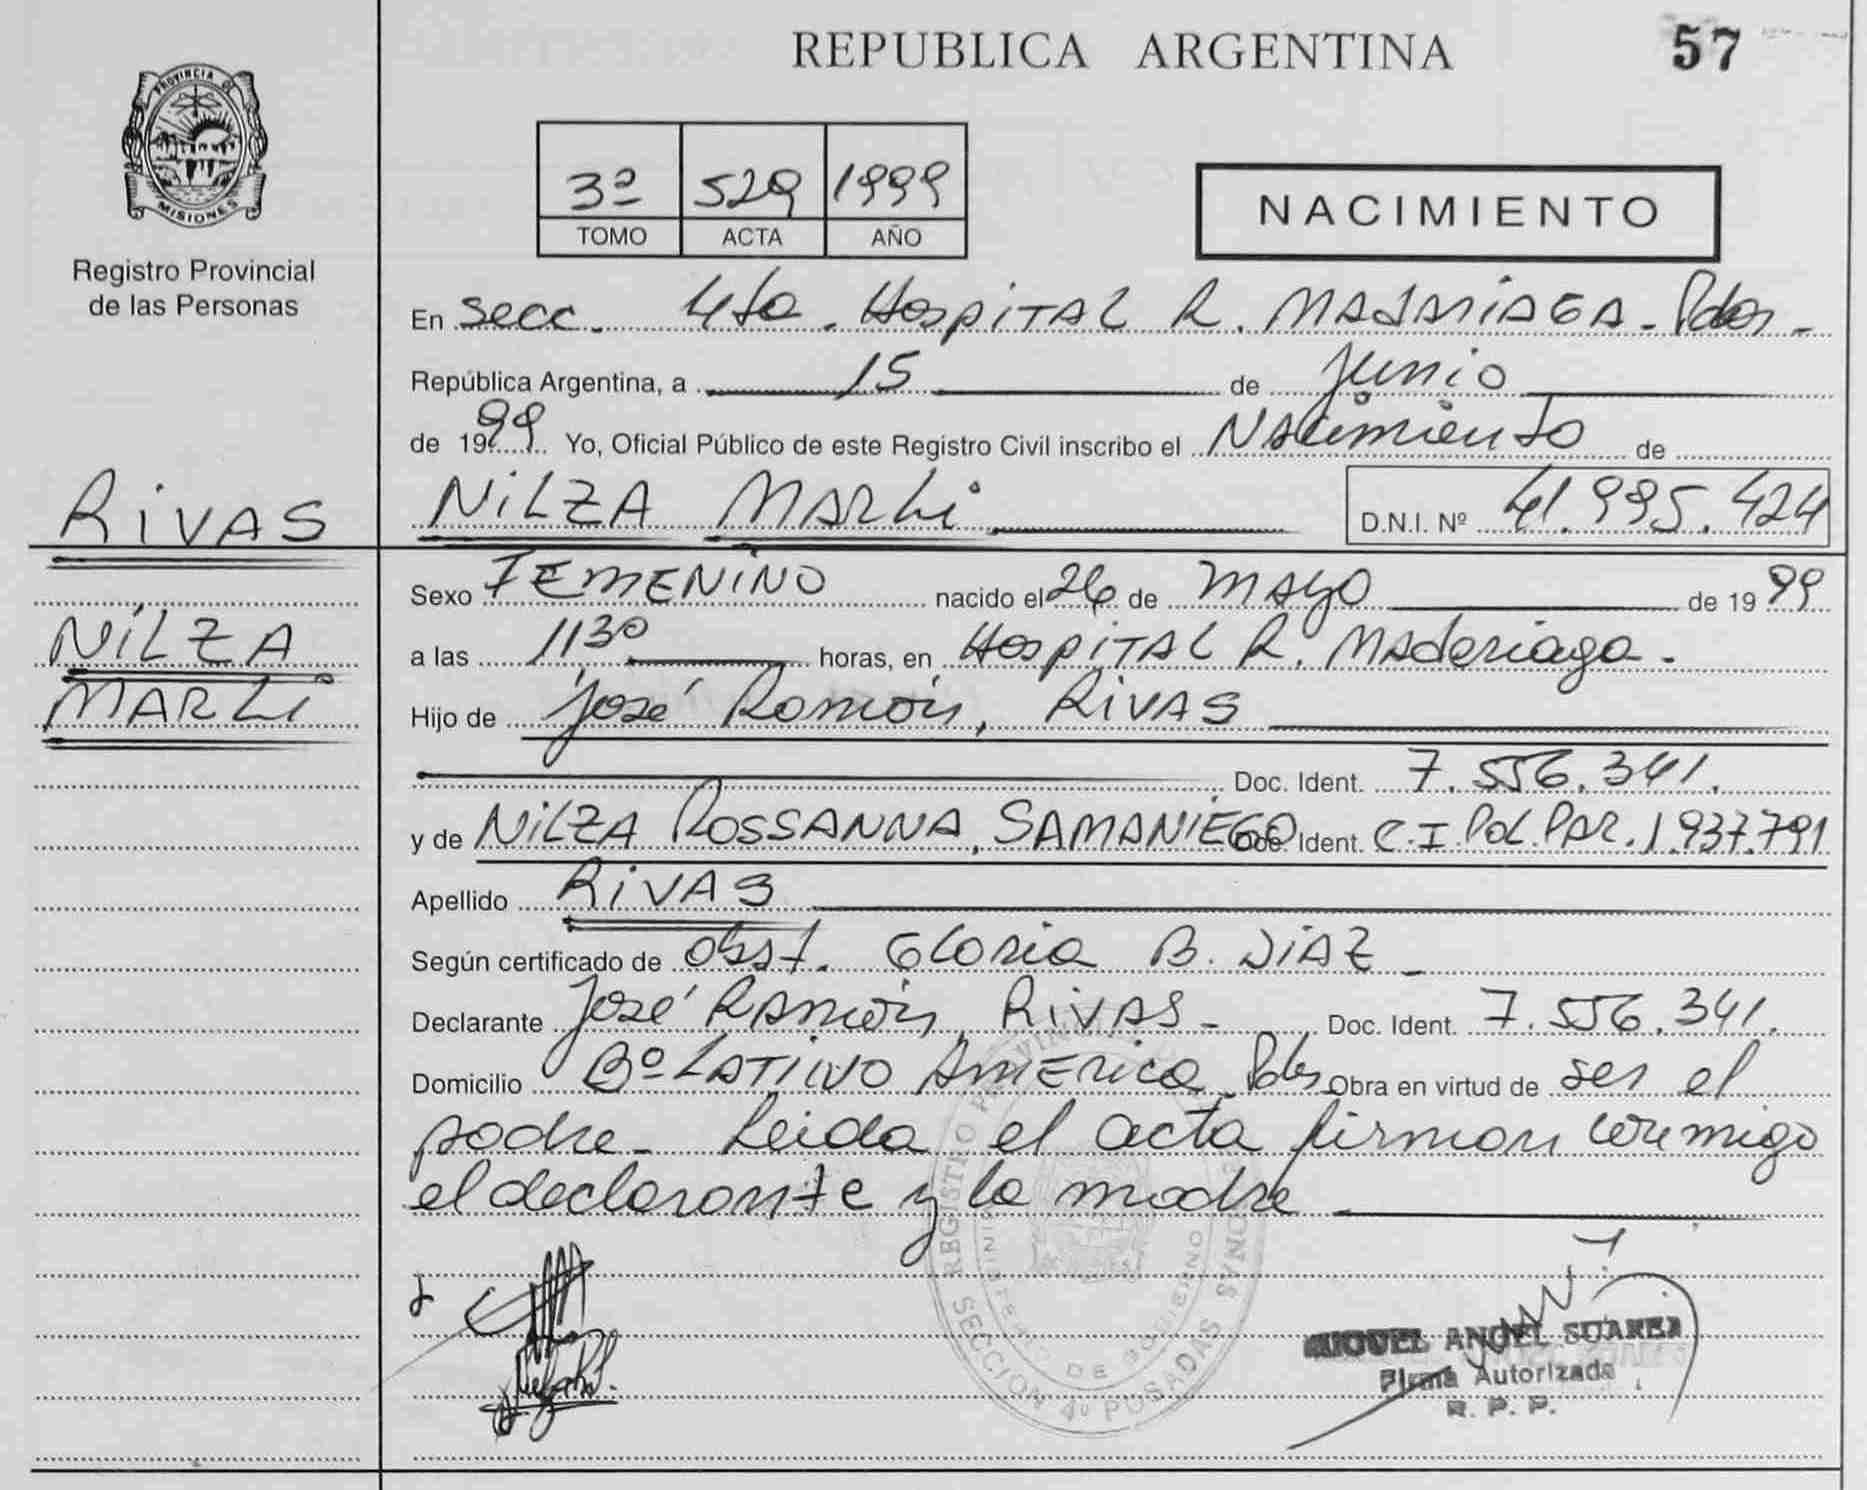 REPUBLICA ARGENTINA
57
PROVINCIA DE
MISIONES
Registro Provincial
de las Personas
3º 529 1999
TOMO ACTA AÑO
NACIMIENTO
En Secc. 4ta. Hospital R. MADARIAGA - Pdas -
República Argentina, a 15 de Junio
de 1999. Yo, Oficial Público de este Registro Civil inscribo el Nacimiento de
RIVAS
NILZA MARLI
D.N.I. Nº 41.995.424
NILZA
MARLI
Sexo FEMENINO nacido el 26 de MAYO de 1999
a las 1130 horas, en Hospital R. Maderiaga.
Hijo de José Ramón, RIVAS
Doc. Ident. 7.556.341.
y de NILZA ROSSANNA, SAMANIEGO Doc. Ident. C.I. POL. PAR. 1.937.791
Apellido RIVAS
Según certificado de Obst. Gloria B. DIAZ -
Declarante José Ramón, RIVAS - Doc. Ident. 7.556.341.
Domicilio Bº LATINO America, Pdas Obra en virtud de ser el
padre - Leida el acta firman conmigo
el declarante y la madre -
REGISTRO PROVINCIAL DE LAS PERSONAS
MINISTERIO DE GOBIERNO
SECCION 4º POSADAS
MIGUEL ANGEL SUAREZ
Firma Autorizada
R. P. P.